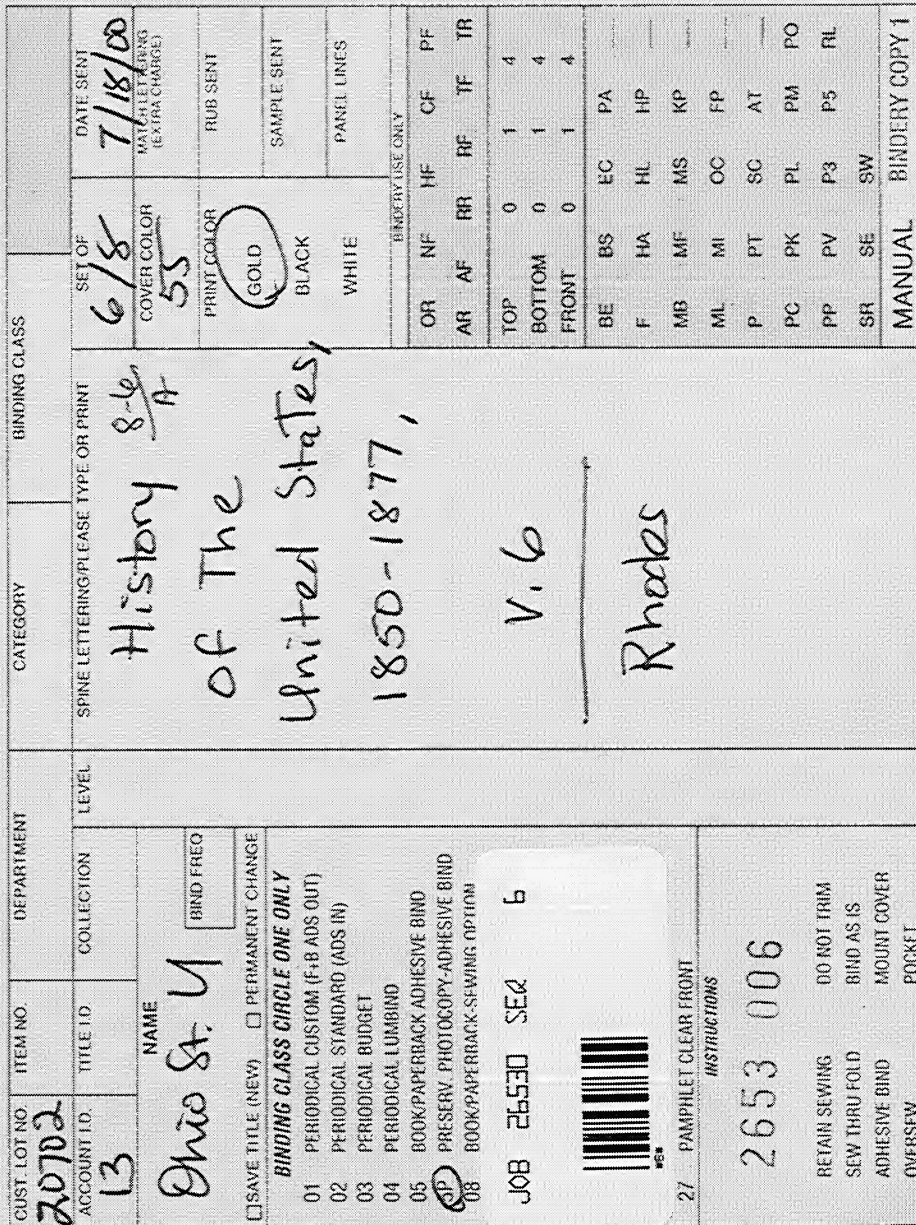 CUST. LOT NO. ITEM NO. DEPARTMENT CATEGORY BINDING CLASS
20702
ACCOUNT I.D. TITLE I.D. COLLECTION LEVEL
13
NAME
Ohio St. U
BIND FREQ
☐ SAVE TITLE (NEW) ☐ PERMANENT CHANGE
BINDING CLASS CIRCLE ONE ONLY
01 PERIODICAL CUSTOM (F+B ADS OUT)
02 PERIODICAL STANDARD (ADS IN)
03 PERIODICAL BUDGET
04 PERIODICAL LUMBIND
05 BOOK/PAPERBACK ADHESIVE BIND
PRESERV. PHOTOCOPY-ADHESIVE BIND
08 BOOK/PAPERBACK-SEWING OPTION
JOB 26530 SEQ 6
*6*
27 PAMPHLET CLEAR FRONT
INSTRUCTIONS
2653 006
RETAIN SEWING DO NOT TRIM
SEW THRU FOLD BIND AS IS
ADHESIVE BIND MOUNT COVER
OVERSEW POCKET
SPINE LETTERING/PLEASE TYPE OR PRINT
History 8-6/A
of The
United States,
1850-1877,
V. 6
Rhodes
SET OF DATE SENT
6/8 7/18/00
COVER COLOR MATCH LETTERING
55 (EXTRA CHARGE)
PRINT COLOR RUB SENT
GOLD
BLACK SAMPLE SENT
WHITE PANEL LINES
BINDERY USE ONLY
OR NF HF CF PF
AR AF RR RF TF TR
TOP 0 1 4
BOTTOM 0 1 4
FRONT 0 1 4
BE BS EC PA
F HA HL HP
MB MF MS KP
ML MI OC FP
P PT SC AT
PC PK PL PM PO
PP PV P3 P5 RL
SR SE SW
MANUAL BINDERY COPY 1